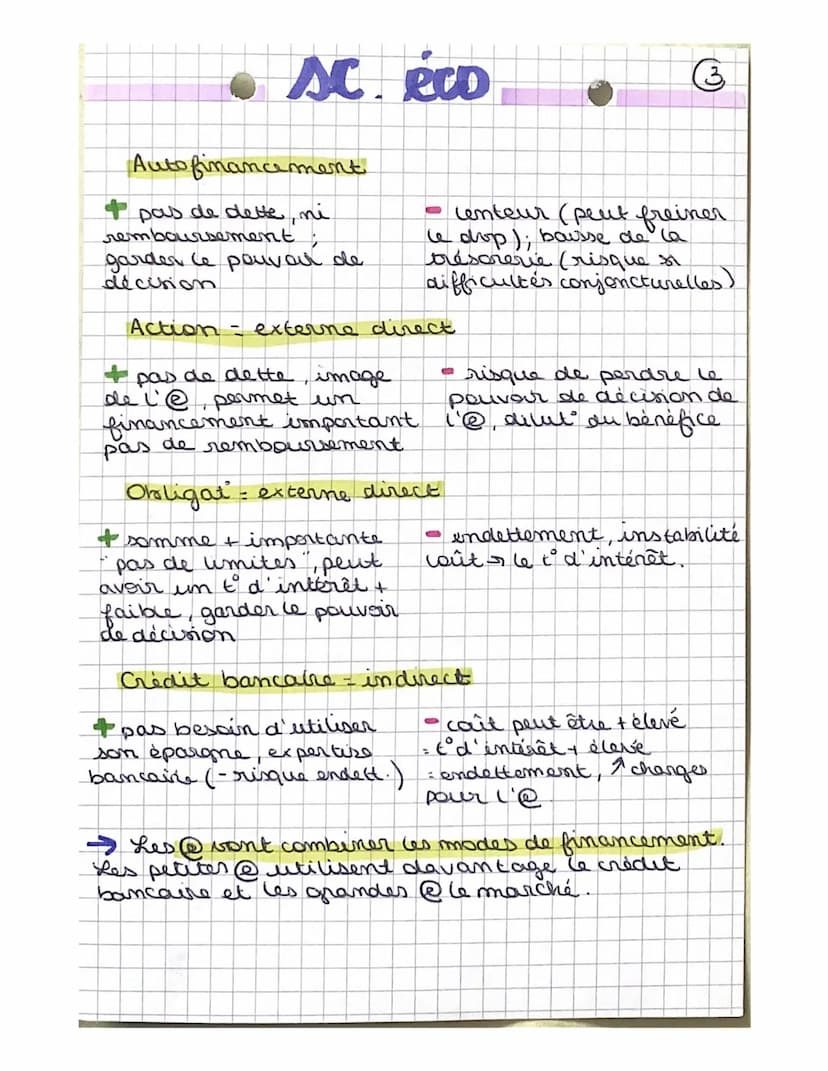 SC. éco
3
Autofinancement
+ pas de dette, ni
remboursement ;
garder le pouvoir de
décision
- lenteur (peut freiner
le dvop) ; baisse de la
trésorerie (risque si
difficultés conjoncturelles)
Action = externe direct
+ pas de dette, image
de l'@, permet un
financement important
pas de remboursement
- risque de perdre le
pouvoir de décision de
l'@, dilut° du bénéfice
Obligat° = externe direct
+ somme + importante
"pas de limites", peut
avoir un t° d'intérêt +
faible, garder le pouvoir
de décision
- endettement, instabilité
coût → le t° d'intérêt.
Crédit bancaire = indirect
+ pas besoin d'utiliser
son épargne, expertise
bancaire (- risque endett.)
- coût peut être + élevé
= t° d'intérêt + élevé
= endettement, ↗ charges
pour l'@
→ Les @ vont combiner les modes de financement.
Les petites @ utilisent davantage le crédit
bancaire et les grandes @ le marché.